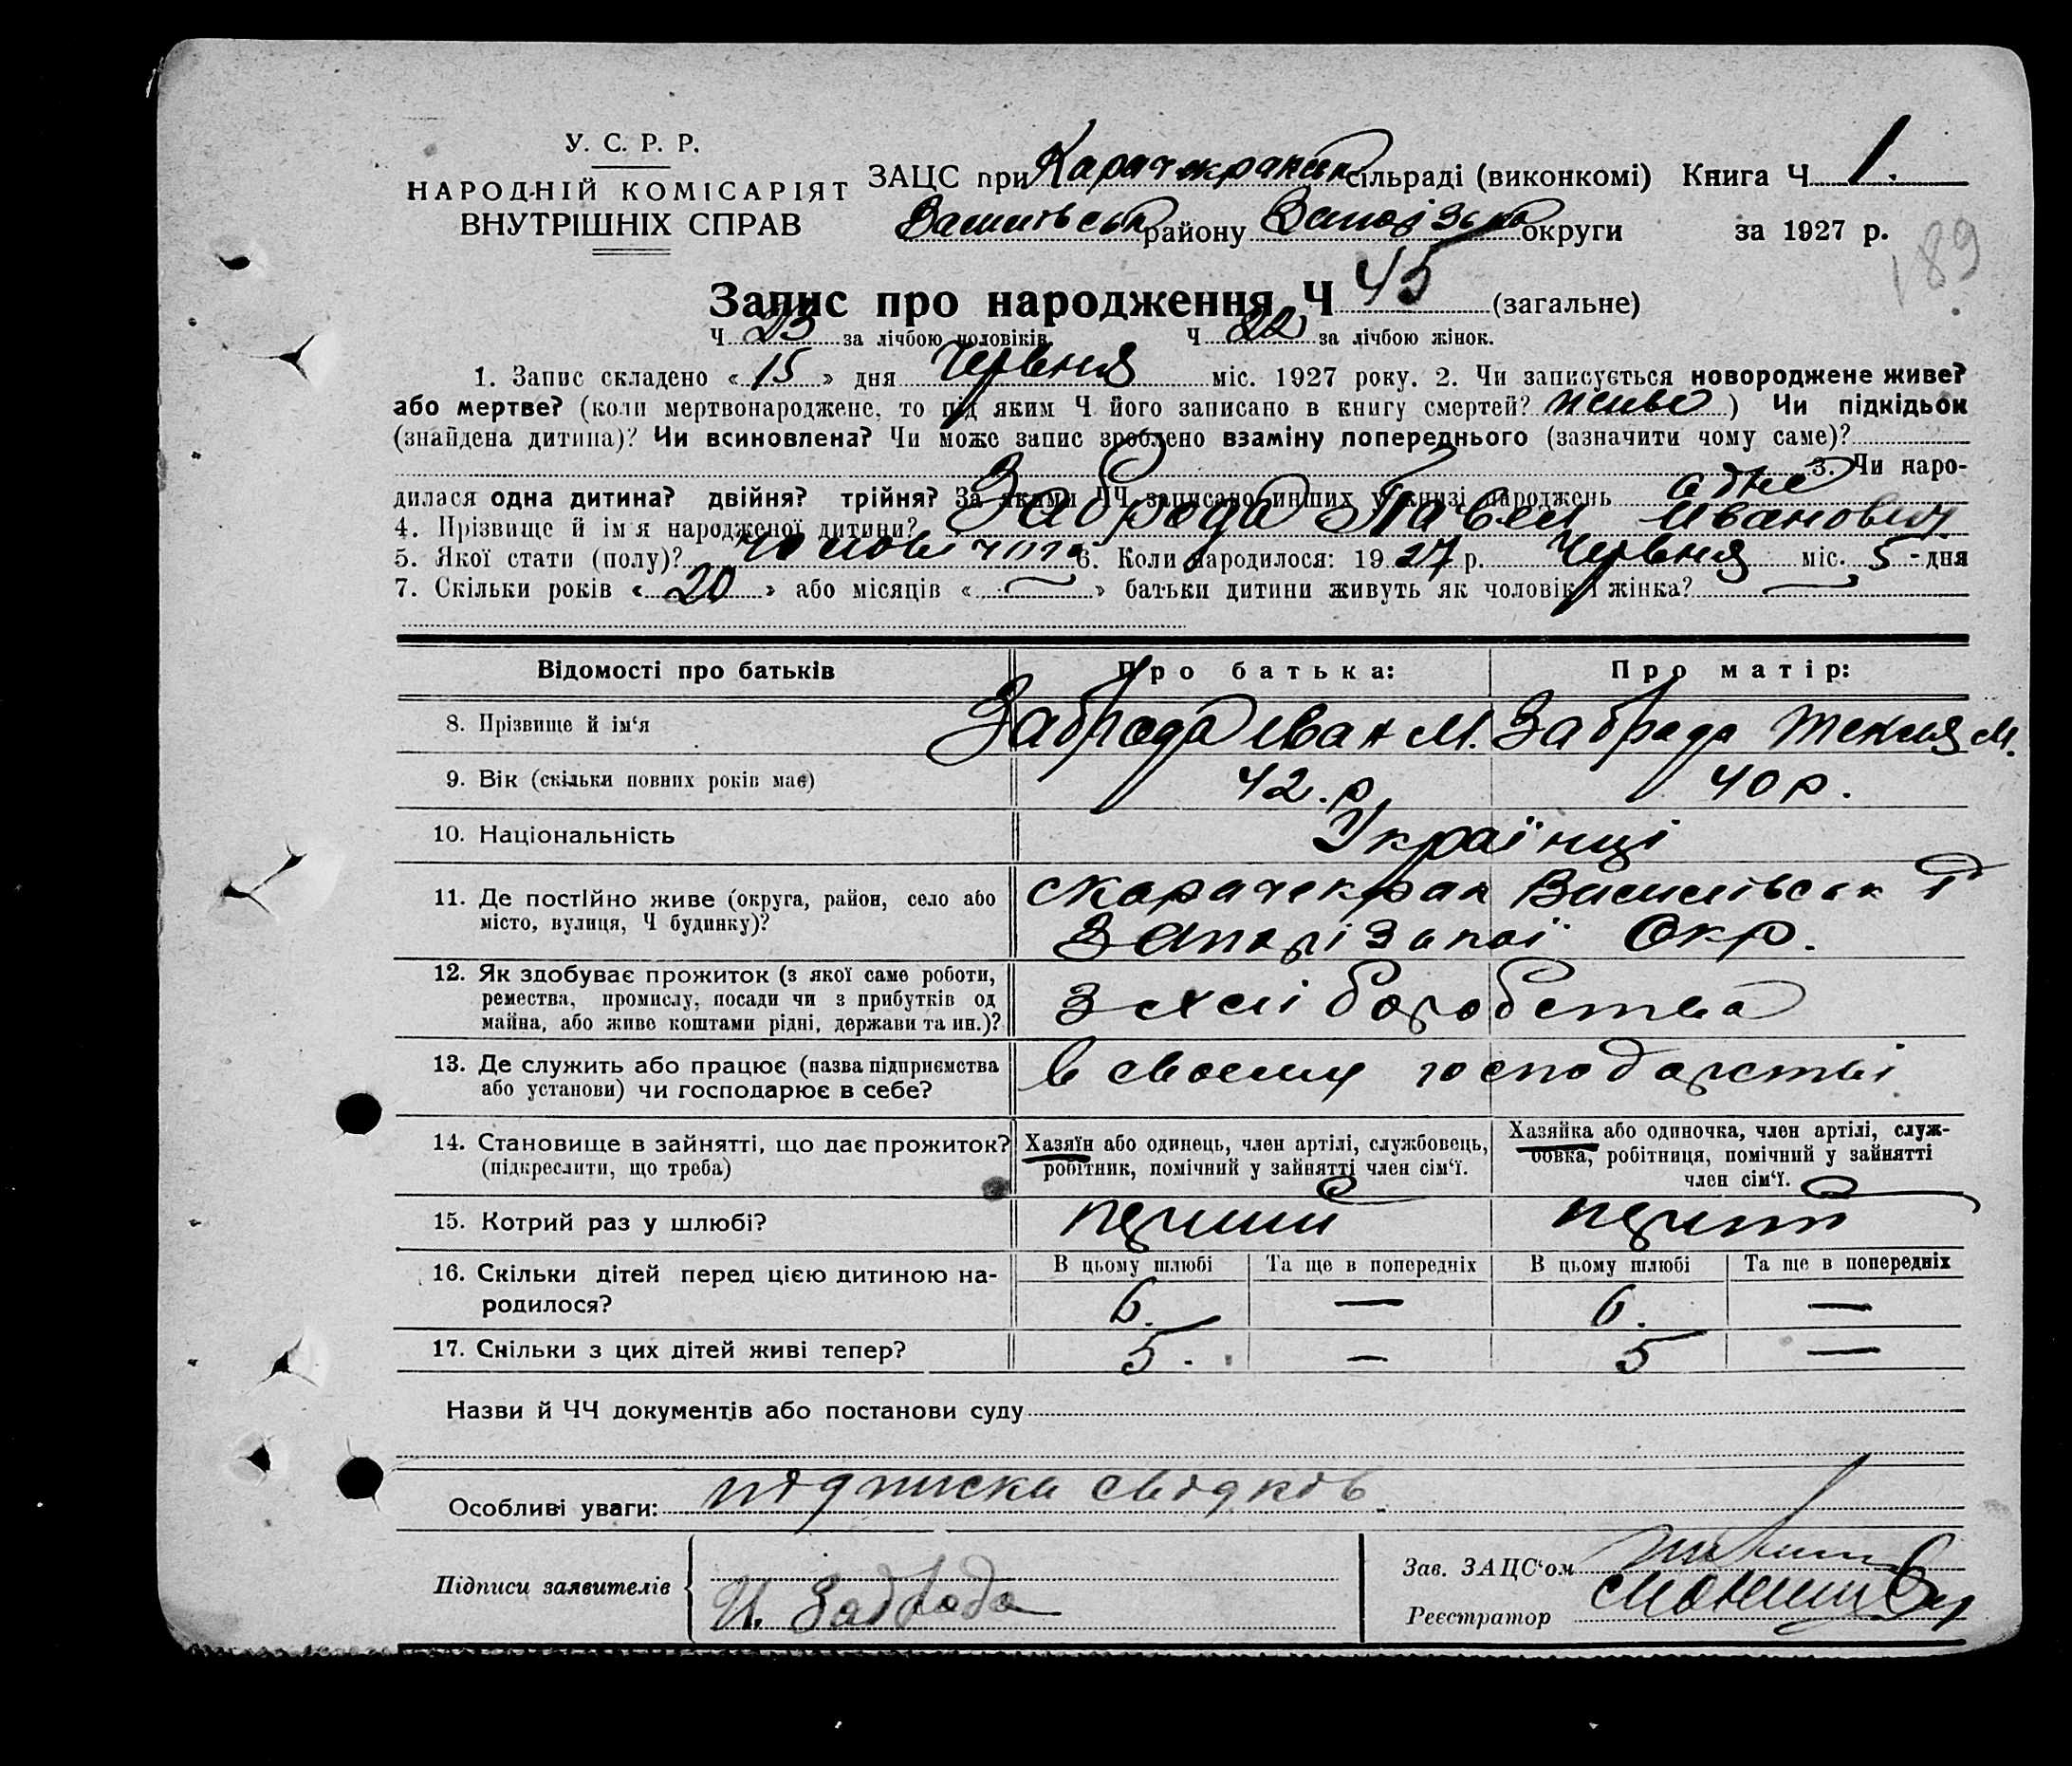 У. С. Р. Р.
НАРОДНІЙ КОМІСАРІЯТ
ВНУТРІШНІХ СПРАВ
ЗАЦС при Карачекранськ сільраді (виконкомі) Книга Ч 1.
Василівськ району Запоізько округи за 1927 р.
189
Запис про народження Ч 45 (загальне)
Ч 23 за лічбою чоловіків. Ч 22 за лічбою жінок.
1. Запис складено «15» дня Червня міс. 1927 року. 2. Чи записується новороджене живе?
або мертве? (коли мертвонароджене, то під яким Ч його записано в книгу смертей? живе) Чи підкідьок
(знайдена дитина)? Чи всиновлена? Чи може запис зроблено взаміну попереднього (зазначити чому саме)?
3. Чи наро-
дилася одна дитина? двійня? трійня? За якими ЧЧ записано инших у книзі народжень одне
4. Прізвище й ім'я народженої дитини? Заброда Павел Иванович
5. Якої стати (полу)? чоловіча 6. Коли народилося: 1927 р. Червня міс. 5 - дня
7. Скільки років «20» або місяців «—» батьки дитини живуть як чоловік і жінка? —
Відомості про батьків Про батька: Про матір:
8. Прізвище й ім'я Заброда Иван М. Заброда Текля М.
9. Вік (скільки повних років має) 42.р. 40р.
10. Національність Українці
11. Де постійно живе (округа, район, село або місто, вулиця, Ч будинку)? с Карачекрак Василівськ Р
Запорізькоі Окр.
12. Як здобуває прожиток (з якої саме роботи,
ремества, промислу, посади чи з прибутків од
майна, або живе коштами рідні, держави та ин.)? З хліборобства
13. Де служить або працює (назва підприємства
або установи) чи господарює в себе? в своему господарстві
14. Становище в зайнятті, що дає прожиток?
(підкреслити, що треба)
Хазяїн або одинець, член артілі, службовець,
робітник, помічний у зайнятті член сім'ї.
Хазяйка або одиночка, член артілі, служ-
бовка, робітниця, помічний у зайнятті
член сім'ї.
15. Котрий раз у шлюбі? перший перший
16. Скільки дітей перед цією дитиною на-
родилося?
В цьому шлюбі Та ще в попередніх В цьому шлюбі Та ще в попередніх
6. — 6. —
17. Скільки з цих дітей живі тепер? 5. — 5 —
Назви й ЧЧ документів або постанови суду
Особливі уваги: підписка свідків
Підписи заявителів И. Заброда
Зав. ЗАЦС'ом
Реєстратор